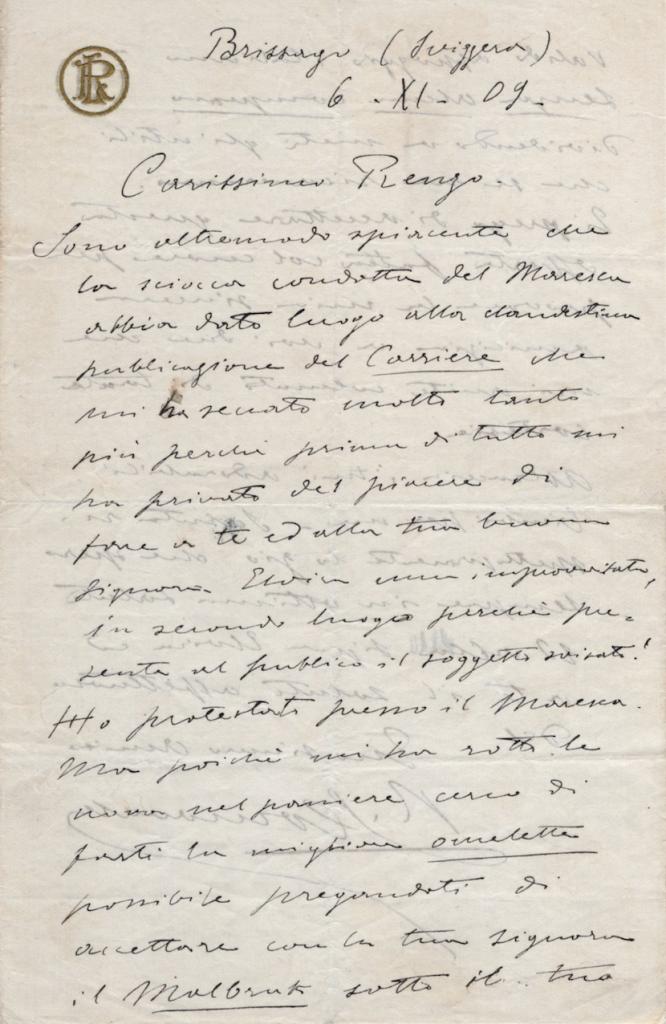 RL
Brissago (Svizzera)
6 - XI - 09 -
Carissimo Renzo
Sono oltremodo spiacente che
la sciocca condotta del Maresca
abbia dato luogo alla clandestina
pubblicazione del Corriere che
mi ha seccato molto tanto
più perché prima di tutto mi
ha privato del piacere di
fare a te ed alla tua buona
Signora Elvira una improvvisata,
in secondo luogo perché pre=
senta al publico il soggetto svisato!
Ho protestato presso il Maresca.
Ma poiché mi ha rotto le
uova nel paniere cerco di
farti la migliore omelette
possibile pregandoti di
accettare con la tua signora
il Malbruk sotto il tuo